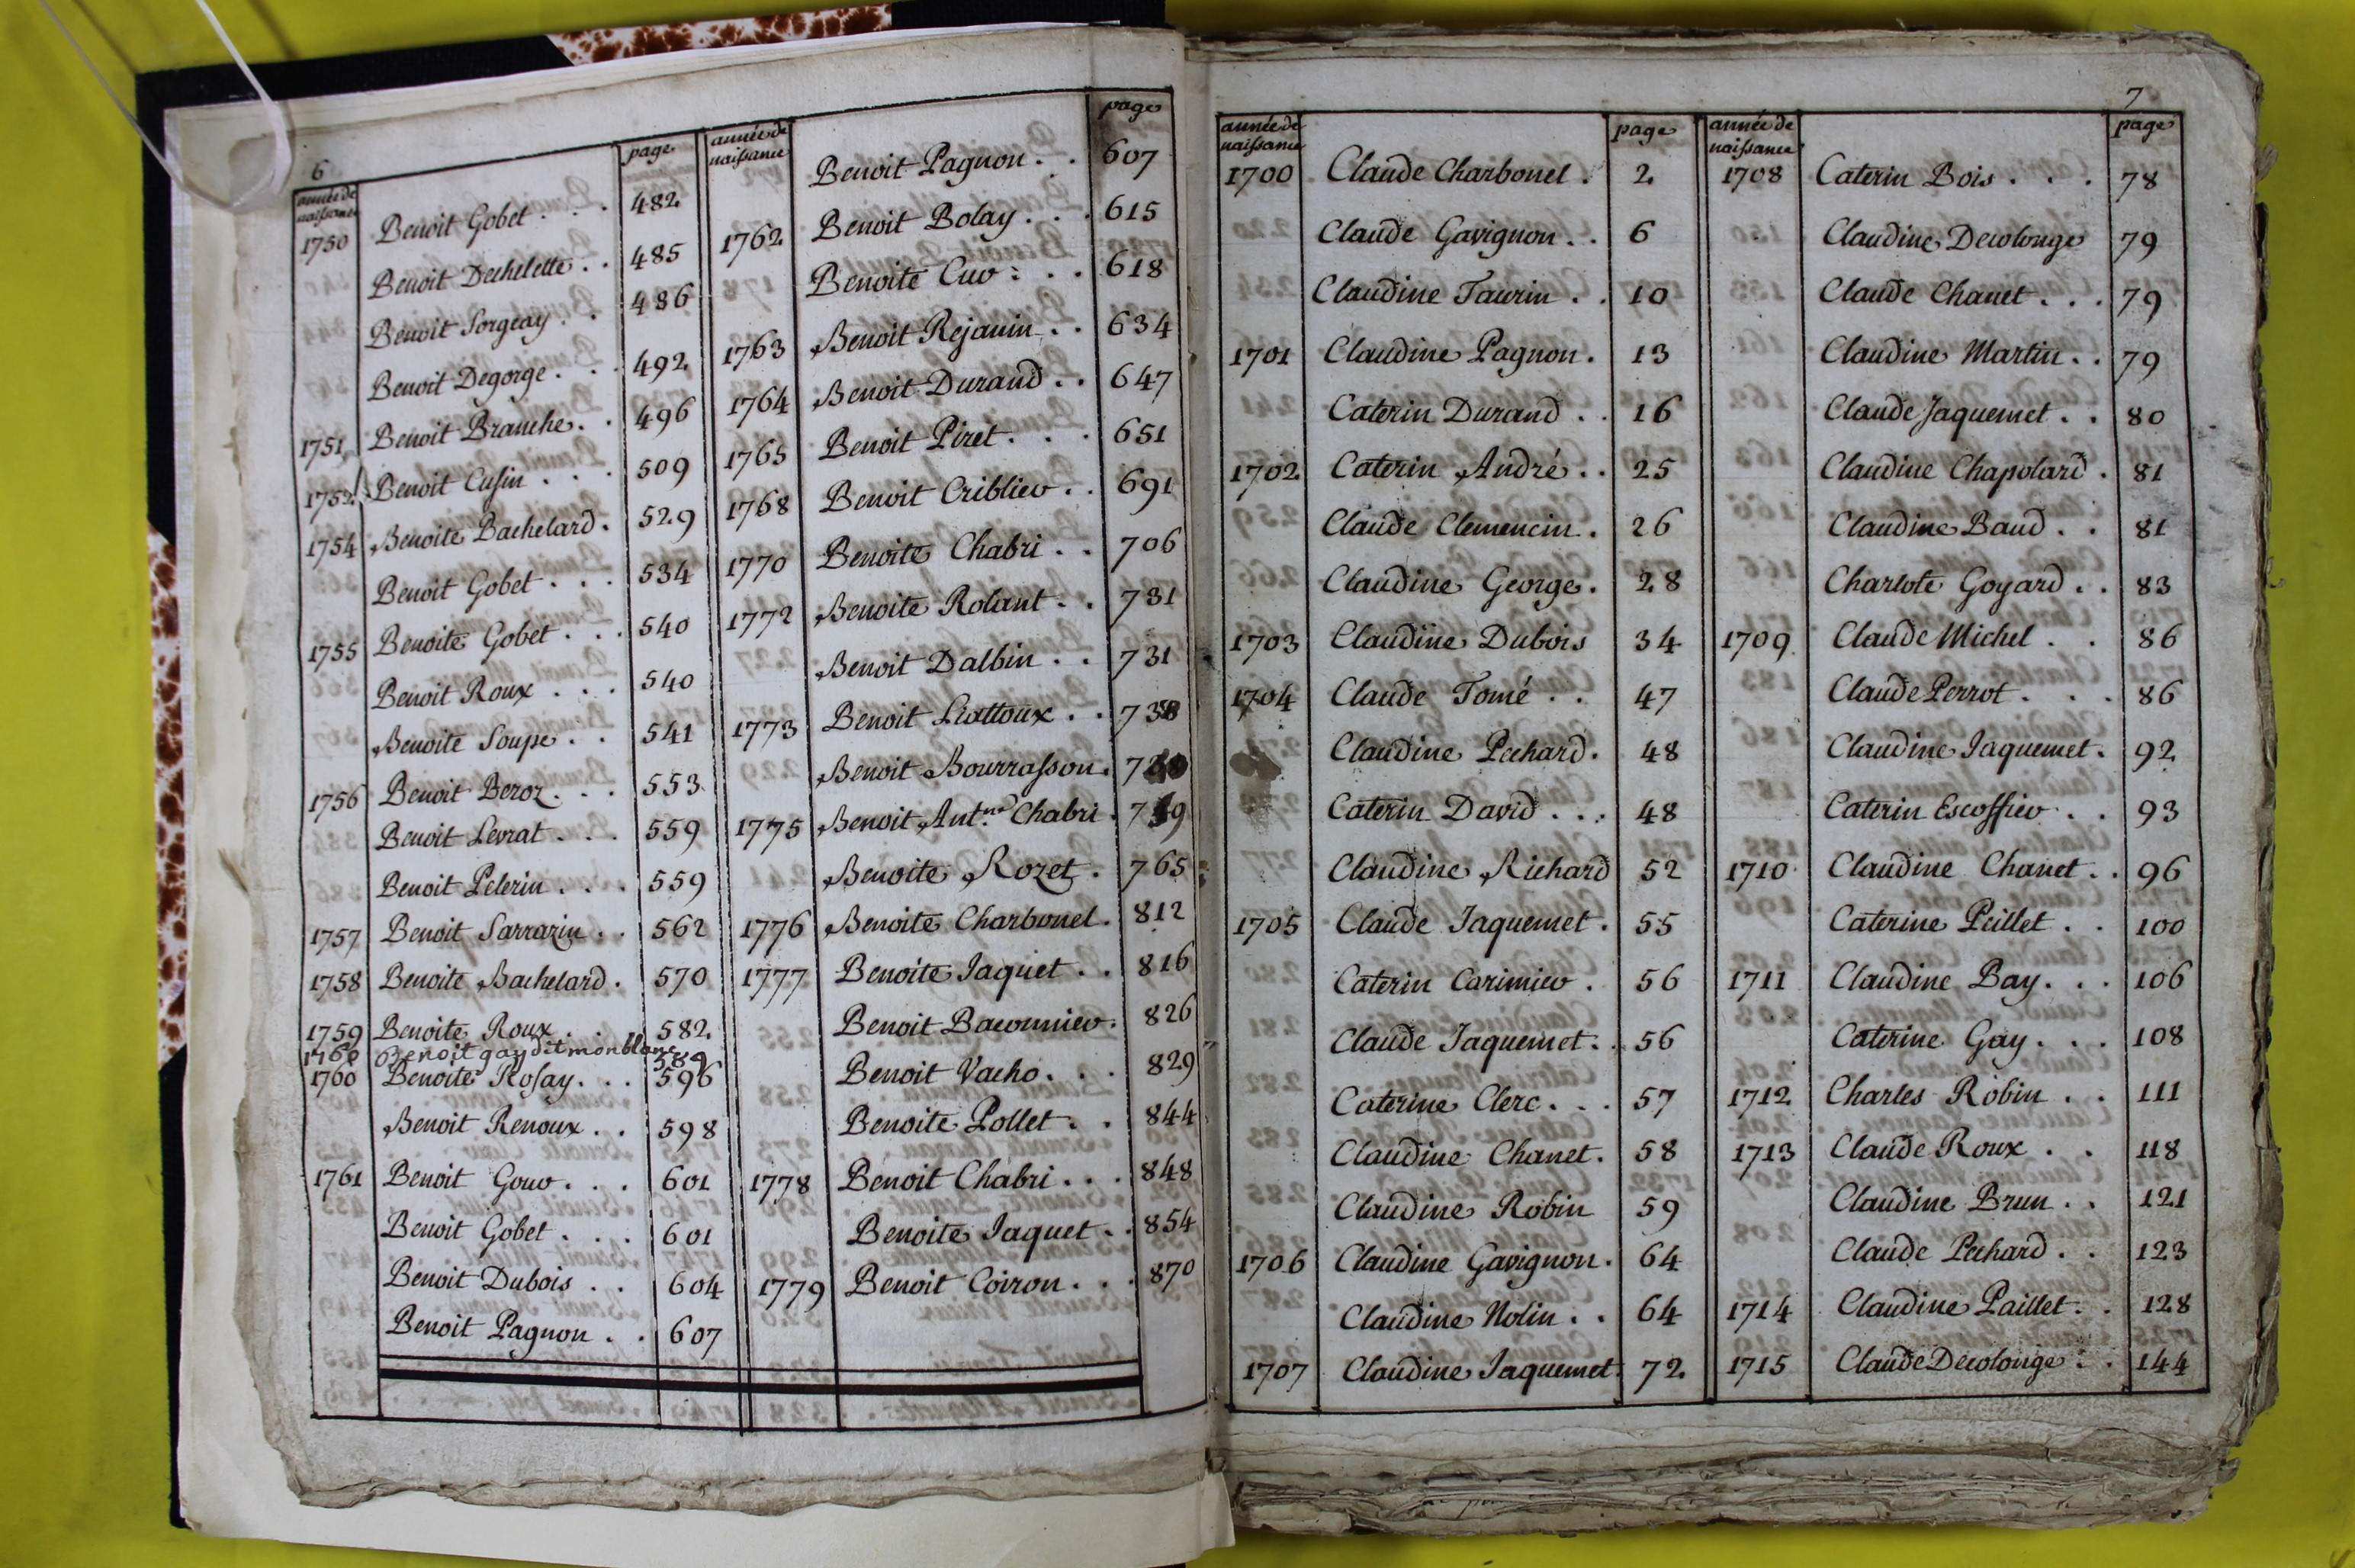 6
année de naissance page
1750 Benoit Gobet . . . 482
Benoit Dechelette . . 485
Benoit Sorgeay . . 486
Benoit Degorge . . 492
1751 Benoit Branche . . 496
1752 Benoit Cusin . . . 509
1754 Benoite Bachelard . 529
Benoit Gobet . . . 534
1755 Benoite Gobet . . . 540
Benoit Roux . . . 540
Benoite Soupe . . 541
1756 Benoit Beroz . . . 553
Benoit Levrat . . . 559
Benoit Pelerin . . . 559
1757 Benoit Sarrazin . . 562
1758 Benoite Bachelard . 570
1759 Benoite Roux . . 582
1760 Benoit gay dit monblanc 589
1760 Benoite Rosay . . . 596
Benoit Renoux . . 598
1761 Benoit Gouv . . . 601
Benoit Gobet . . . 601
Benoit Dubois . . 604
Benoit Pagnon . . 607
année de naissance page
Benoit Pagnon . . 607
1762 Benoit Bolay . . . 615
Benoite Cuv . . . 618
1763 Benoit Rejanin . . 634
1764 Benoit Durand . . 647
1765 Benoit Piret . . . 651
1768 Benoit Criblieu . . 691
1770 Benoite Chabri . . 706
1772 Benoite Rolant . . 731
Benoit Dalbin . . 731
1773 Benoit Liattoux . . 738
Benoit Bourrasson .
1775 Benoit Ant.ne Chabri .
Benoite Rozet . 765
1776 Benoite Charbonel . 812
1777 Benoite Jaquet . . 816
Benoit Baconnieu . 826
Benoit Vacho . . . 829
Benoite Pollet . . 844
1778 Benoit Chabri . . . 848
Benoite Jaquet . . 854
1779 Benoit Coiron . . . 870
7
année de naissance page
1700 Claude Charbonel . 2
Claude Gavignon . . 6
Claudine Taurin . . 10
1701 Claudine Pagnon . 13
Caterin Durand . . 16
1702 Caterin André . . 25
Claude Clemencin . 26
Claudine George . 28
1703 Claudine Dubois 34
1704 Claude Tomé . . 47
Claudine Pechard . 48
Caterin David . . . 48
Claudine Richard 52
1705 Claude Jaquemet . 55
Caterin Carimieu . 56
Claude Jaquemet . . 56
Caterine Clerc . . . 57
Claudine Chanet . 58
Claudine Robin 59
1706 Claudine Gavignon . 64
Claudine Nolin . . 64
1707 Claudine Jaquemet 72
année de naissance page
1708 Caterin Bois . . . 78
Claudine Decolonge 79
Claude Chanet . . . 79
Claudine Martin . . 79
Claude Jaquemet . . 80
Claudine Chapolard . 81
Claudine Baud . . 81
Charlote Goyard . . 83
1709 Claude Michel . . 86
Claude Perrot . . . 86
Claudine Jaquemet . 92
Caterin Escoffieu . . 93
1710 Claudine Chanet . . 96
Caterine Peillet . . 100
1711 Claudine Bay . . . 106
Caterine Gay . . . 108
1712 Charles Robin . . 111
1713 Claude Roux . . 118
Claudine Brun . . 121
Claude Pechard . . 123
1714 Claudine Paillet . . 128
1715 Claude Decolonge . . 144